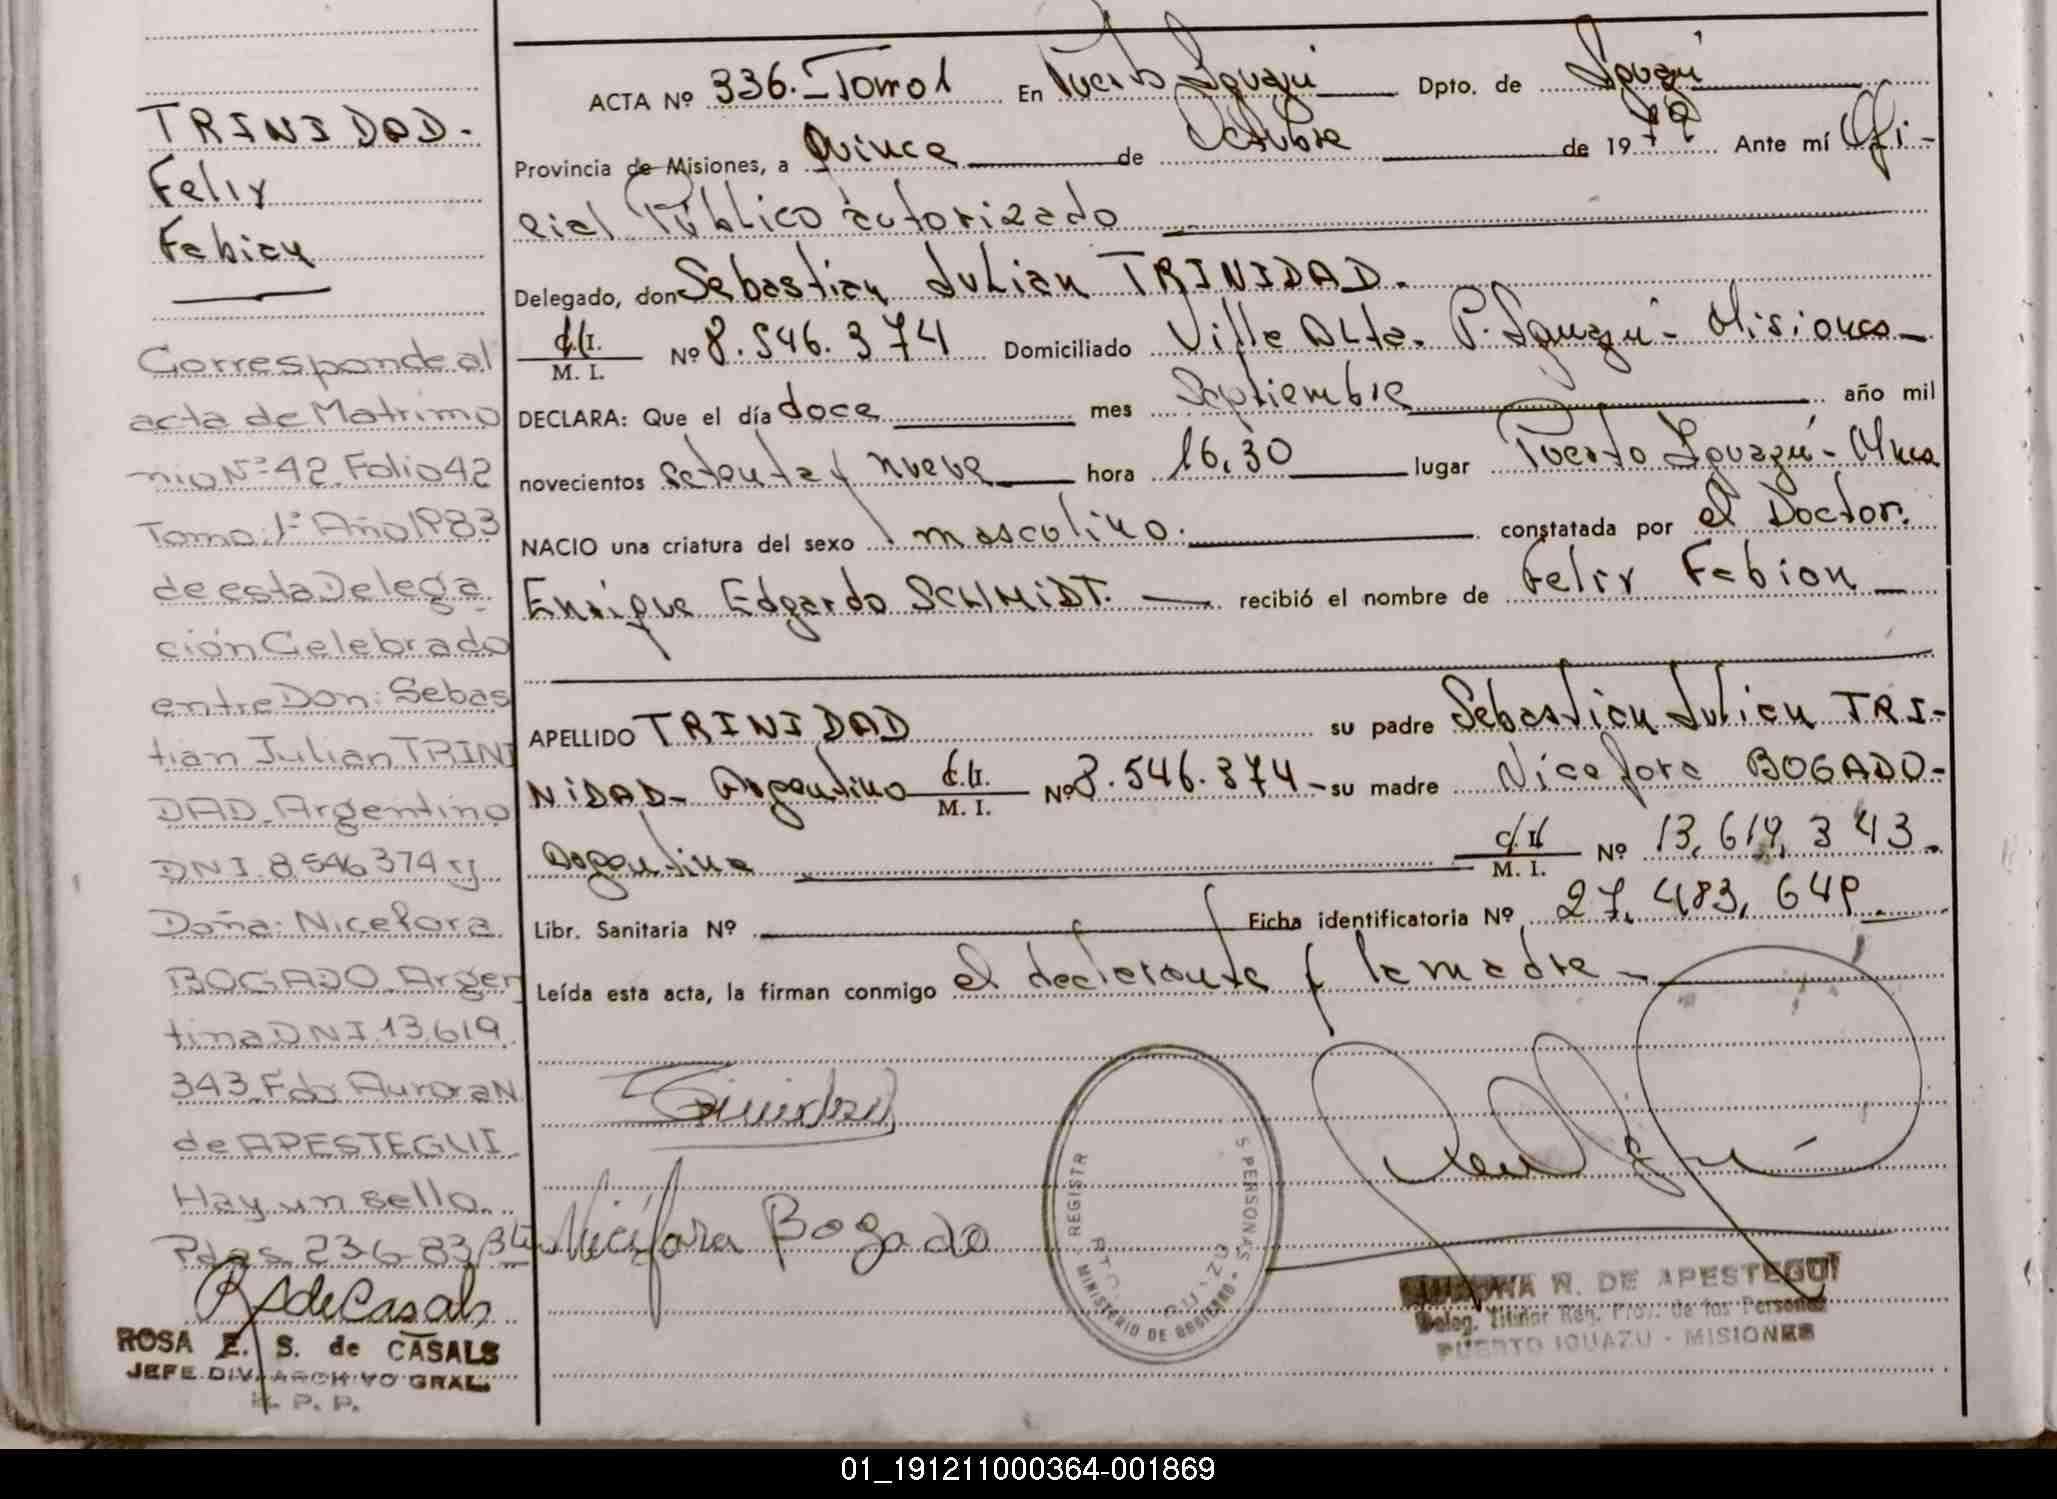 TRINIDAD.
Felix
Fabian
Corresponde al
acta de Matrimo
nio Nº 42 Folio 42
Tomo: 1º Año 1983
de esta Delega
ción Celebrado
entre Don: Sebas
tian Julian TRINI
DAD. Argentino
DNI. 8546374 y
Doña: Nicefora
BOGADO. Argen
tina DNI. 13.619.
343. Fdo Aurora N.
de APESTEGUI.
Hay un sello.
Pdas. 23-6-83
RSdeCasals
ROSA E. S. de CASALS
JEFE DIV. ARCHIVO GRAL.
R. P. P.
ACTA Nº 336.-Tomo 1 En Puerto Iguazú Dpto. de Iguazú
Provincia de Misiones, a Quince de Octubre de 1979 Ante mí Ofi-
cial Público autorizado
Delegado, don Sebastian Julian TRINIDAD.
C.I.
M. I. Nº 8.546.374 Domiciliado Villa Alta. P. Iguazú - Misiones-
DECLARA: Que el día doce mes Septiembre año mil
novecientos setenta y nueve hora 16,30 lugar Puerto Iguazú - Mnes
NACIO una criatura del sexo masculino. constatada por el Doctor.
Enrique Edgardo SCHMiDT. recibió el nombre de Felix Fabian
APELLIDO TRINIDAD su padre Sebastian Julian TRI-
NiDAD- Argentino C.I.
M. I. Nº 8.546.374 - su madre Nicefora BOGADO-
Argentina C.I.
M. I. Nº 13,619,343.
Libr. Sanitaria Nº Ficha identificatoria Nº 27,483,649
Leída esta acta, la firman conmigo el declarante y la madre -
Trinidad
Nicéfora Bogado
REGISTR
S PERSONAS
MINISTERIO DE GOBIERNO
N. DE APESTEGUI
Deleg. Titular Reg. Prov. de las Personas
PUERTO IGUAZU - MISIONES
01_191211000364-001869